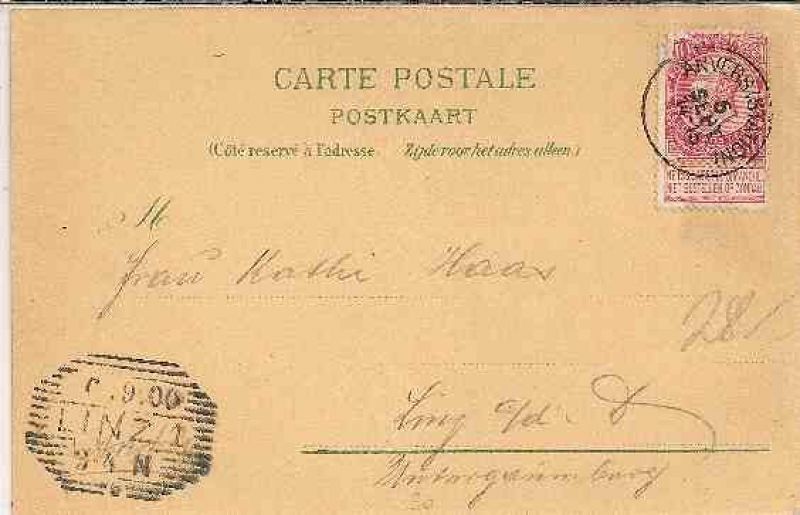 CARTE POSTALE
POSTKAART
(Côté reservé à l'adresse. Zijde voor het adres alleen)
ANVERS
NE PAS
NIET BESTELLEN OP ZONDAG
M
Frau Kathi Haas
281
Linz a/d. D
Untergaumberg
.9.00
LINZ 1
N